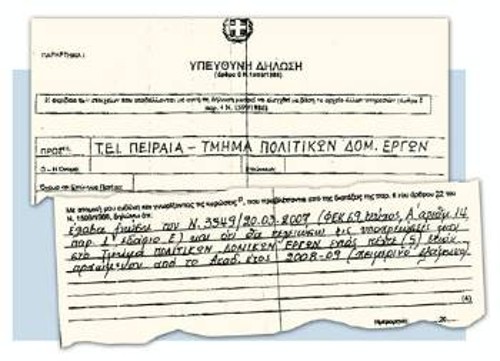 ΠΑΡΑΡΤΗΜΑ I
ΥΠΕΥΘΥΝΗ ΔΗΛΩΣΗ
(άρθρο 8 Ν.1599/1986)
Η ακρίβεια των στοιχείων που υποβάλλονται με αυτή τη δήλωση μπορεί να ελεγχθεί με βάση το αρχείο άλλων υπηρεσιών (άρθρο 8
παρ. 4 Ν. 1599/1986)
ΠΡΟΣ: Τ.Ε.Ι. ΠΕΙΡΑΙΑ – ΤΜΗΜΑ ΠΟΛΙΤΙΚΩΝ ΔΟΜ. ΕΡΓΩΝ
Ο – Η Όνομα: Επώνυμο:
Όνομα και Επώνυμο Πατέρα:
Με ατομική μου ευθύνη και γνωρίζοντας τις κυρώσεις, που προβλέπονται από τις διατάξεις της παρ. 6 του άρθρου 22 του
Ν. 1599/1986, δηλώνω ότι:
Έλαβα γνώση του Ν. 3549/20.03.2007 (ΦΕΚ 69 Α άρθρο 14
παρ. 1 εδάφιο Ε) και ότι θα τελειώσω τις υποχρεώσεις μου
στο Τμήμα ΠΟΛΙΤΙΚΩΝ ΔΟΜΙΚΩΝ ΕΡΓΩΝ εντός πέντε (5) ετών
από το Ακαδ. έτος 2008-09 (χειμερινό εξάμηνο)
(4)
Ημερομηνία: 20